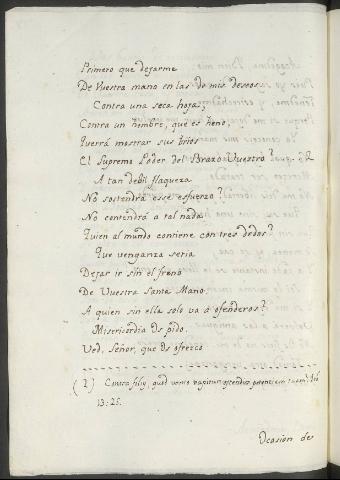 Primero que dejarme
De Vuestra mano en las de mis deseos.
Contra una seca hoja,
Contra un hombre, que es heno,
Querrá mostrar sus brios
El Supremo Poder del Brazo Vuestro? (2)
A tan debil flaqueza
No sostendrá ese esfuerzo?
No contendrá a tal nada
Quien al mundo contiene con tres dedos?
Que venganza seria
Dejar ir sin el freno
De Vuestra Santa Mano.
A quien sin ella solo va á ofenderos?
Misericordia os pido.
Ved, Señor, que os ofrezco
(2) Contra folium, quod vento rapitur, ostendis potentiam tuam. Job
13. 25.
Ocasion de